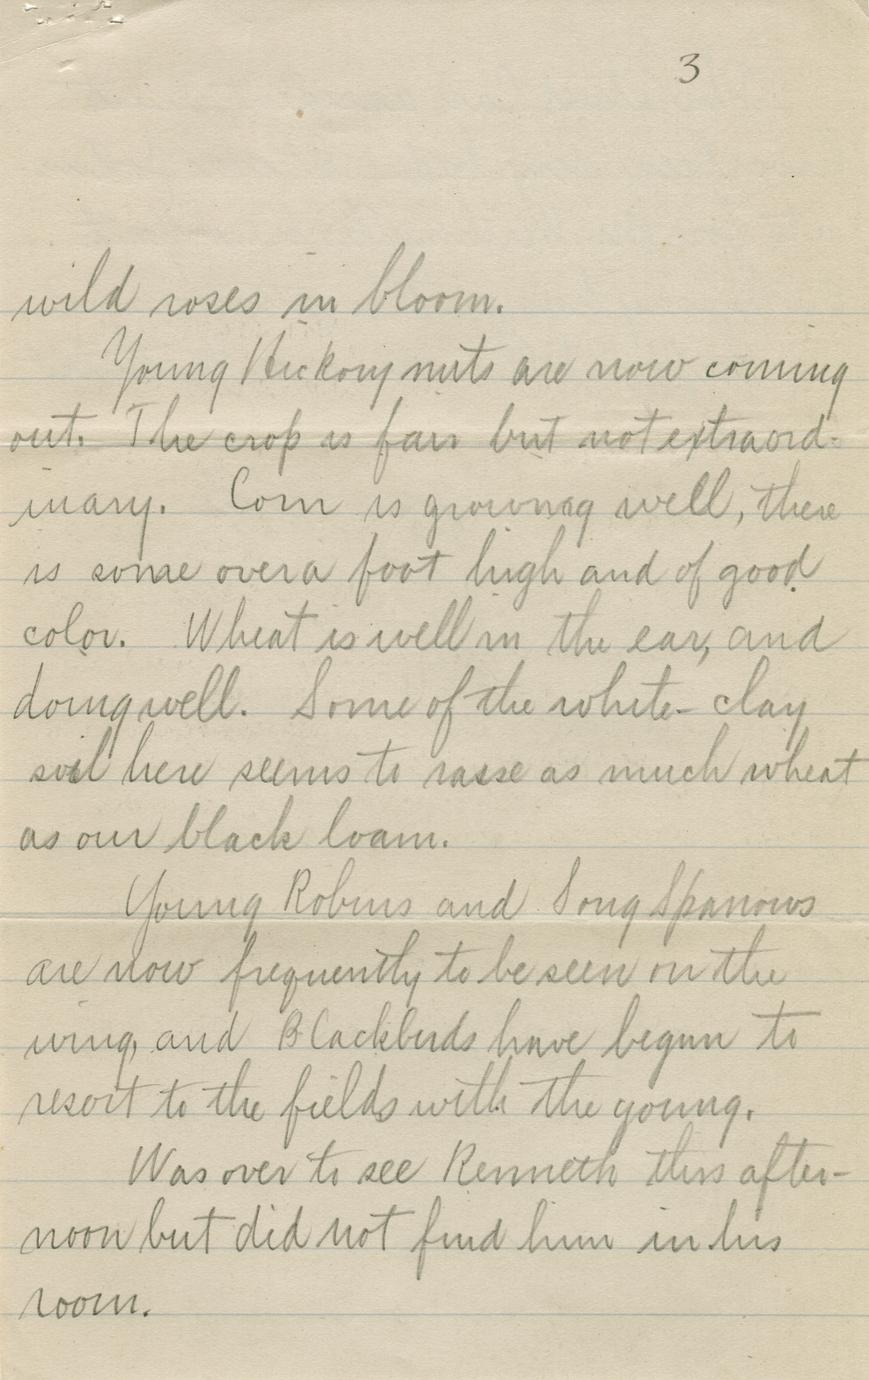 3
wild roses in bloom.
Young Hickory nuts are now coming
out. The crop is fair but not extraord-
inary. Corn is growing well, there
is some over a foot high and of good
color. Wheat is well in the ear, and
doing well. Some of the white-clay
soil here seems to raise as much wheat
as our black loam.
Young Robins and Song Sparrows
are now frequently to be seen on the
wing, and Blackbirds have begun to
resort to the fields with the young.
Was over to see Kenneth this after-
noon but did not find him in his
room.